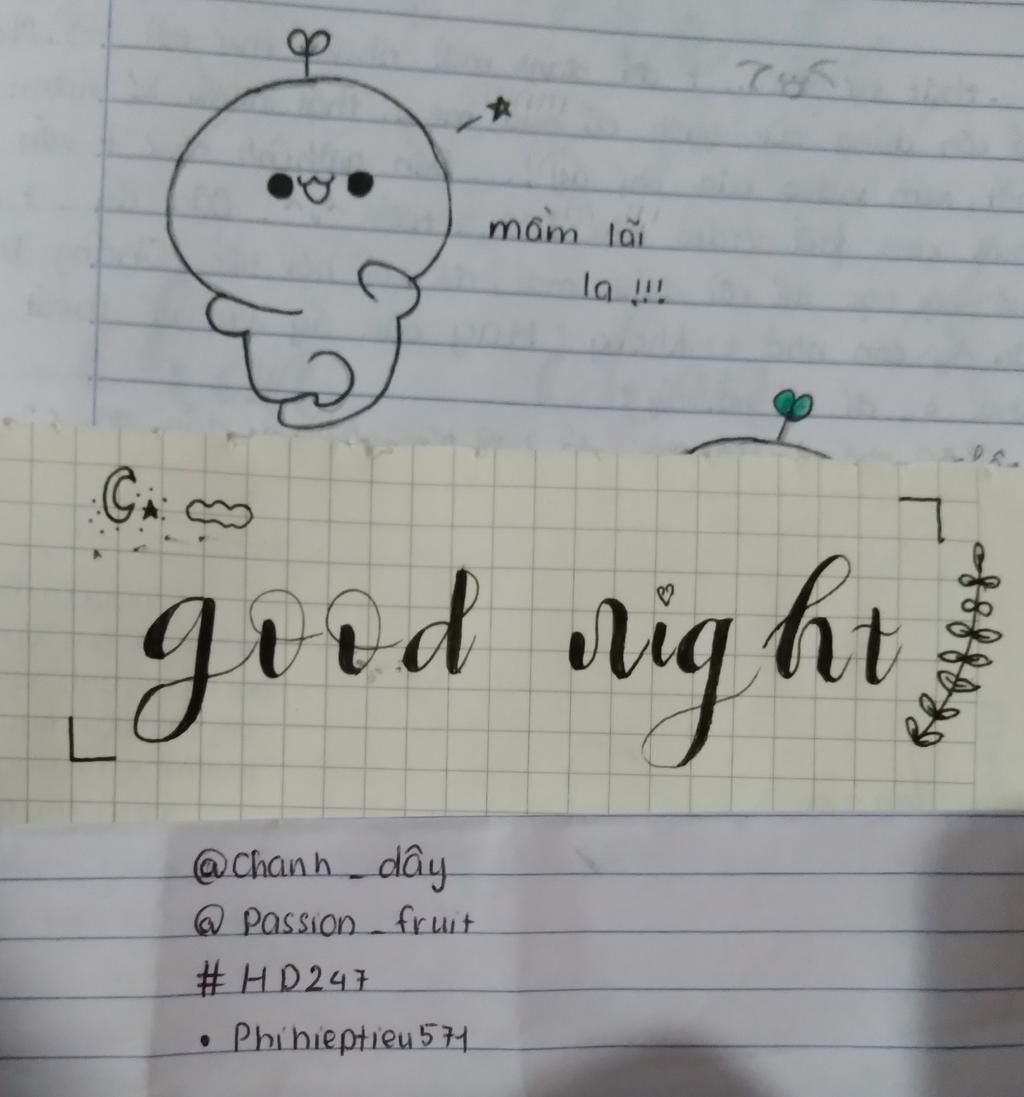 mầm lãi
la !!!
good night
@chanh_dây
@ Passion_fruit
# HD247
• Phihieptieu571